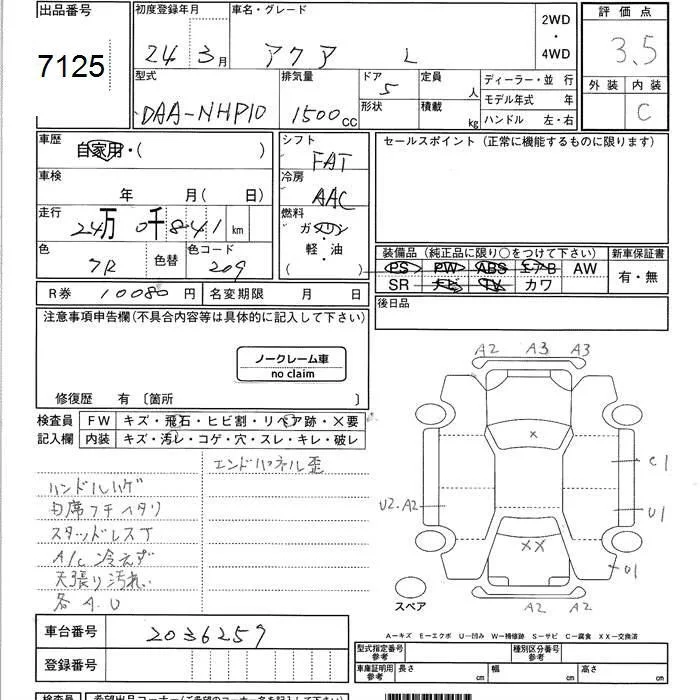 出品番号
7125
初度登録年月
24年3月
車名・グレード
アクア L
2WD
・
4WD
評価点
3.5
外装 内装
C
型式
DAA-NHP10
排気量
1500cc
ドア
5
形状
定員
人
積載
kg
ディーラー・並行
モデル年式 年
ハンドル 左・右
車歴
自家用・( )
車検
年 月(日)
走行
24万0千841km
色
色替
色コード
209
シフト
FAT
冷房
AAC
燃料
ガソリン
・
軽・油
( )
セールスポイント(正常に機能するものに限ります)
装備品(純正品に限り○をつけて下さい)
PS PW ABS エアB AW
SR ナビ TV カワ
新車保証書
有・無
R券 10080円
名変期限 月 日
後日品
注意事項申告欄(不具合内容等は具体的に記入して下さい)
ノークレーム車
no claim
修復歴 有〔箇所 〕
検査員
記入欄
FW キズ・飛石・ヒビ割・リペア跡・×要
内装 キズ・汚レ・コゲ・穴・スレ・キレ・破レ
エンドパネル歪
ハンドルハゲ
スタッドレスT
A/C 冷えず
天張り汚れ
各A.U
A2 A3 A3
×
C1
U2.A2
U1
XX
U1
A2 A2
スペア
A−キズ E−エクボ U−凹み W−補修跡 S−サビ C−腐食 XX−交換済
車台番号
2036259
登録番号
型式指定番号
参考
種別区分番号
参考
車庫証明用
参考
長さ cm
幅 cm
高さ cm
検査員
希望出品コーナー(ご希望のコーナー名を記入して下さい)